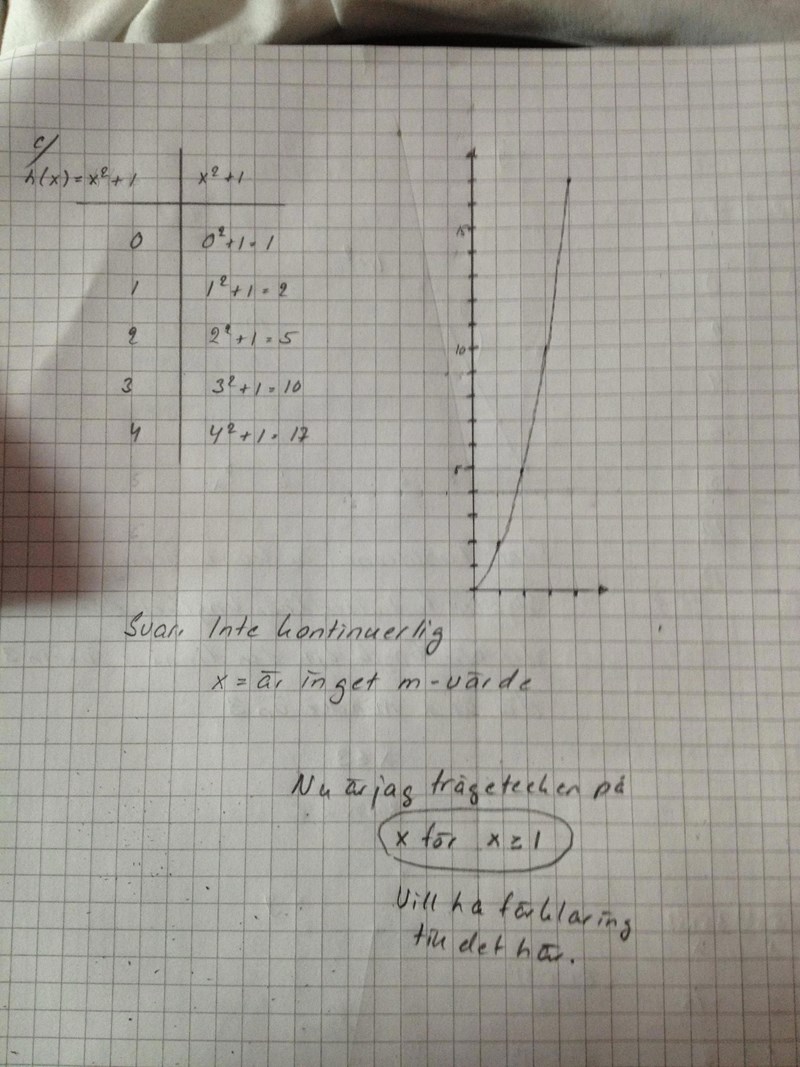 c/
h(x)=x²+1 x²+1
0 0²+1=1
1 1²+1=2
2 2²+1=5
3 3²+1=10
4 4²+1=17
15
10
5
Svar. Inte kontinuerlig
x = är inget m-värde
Nu är jag frågetecken på
x för x ≥ 1
Vill ha förklaring
till det här.